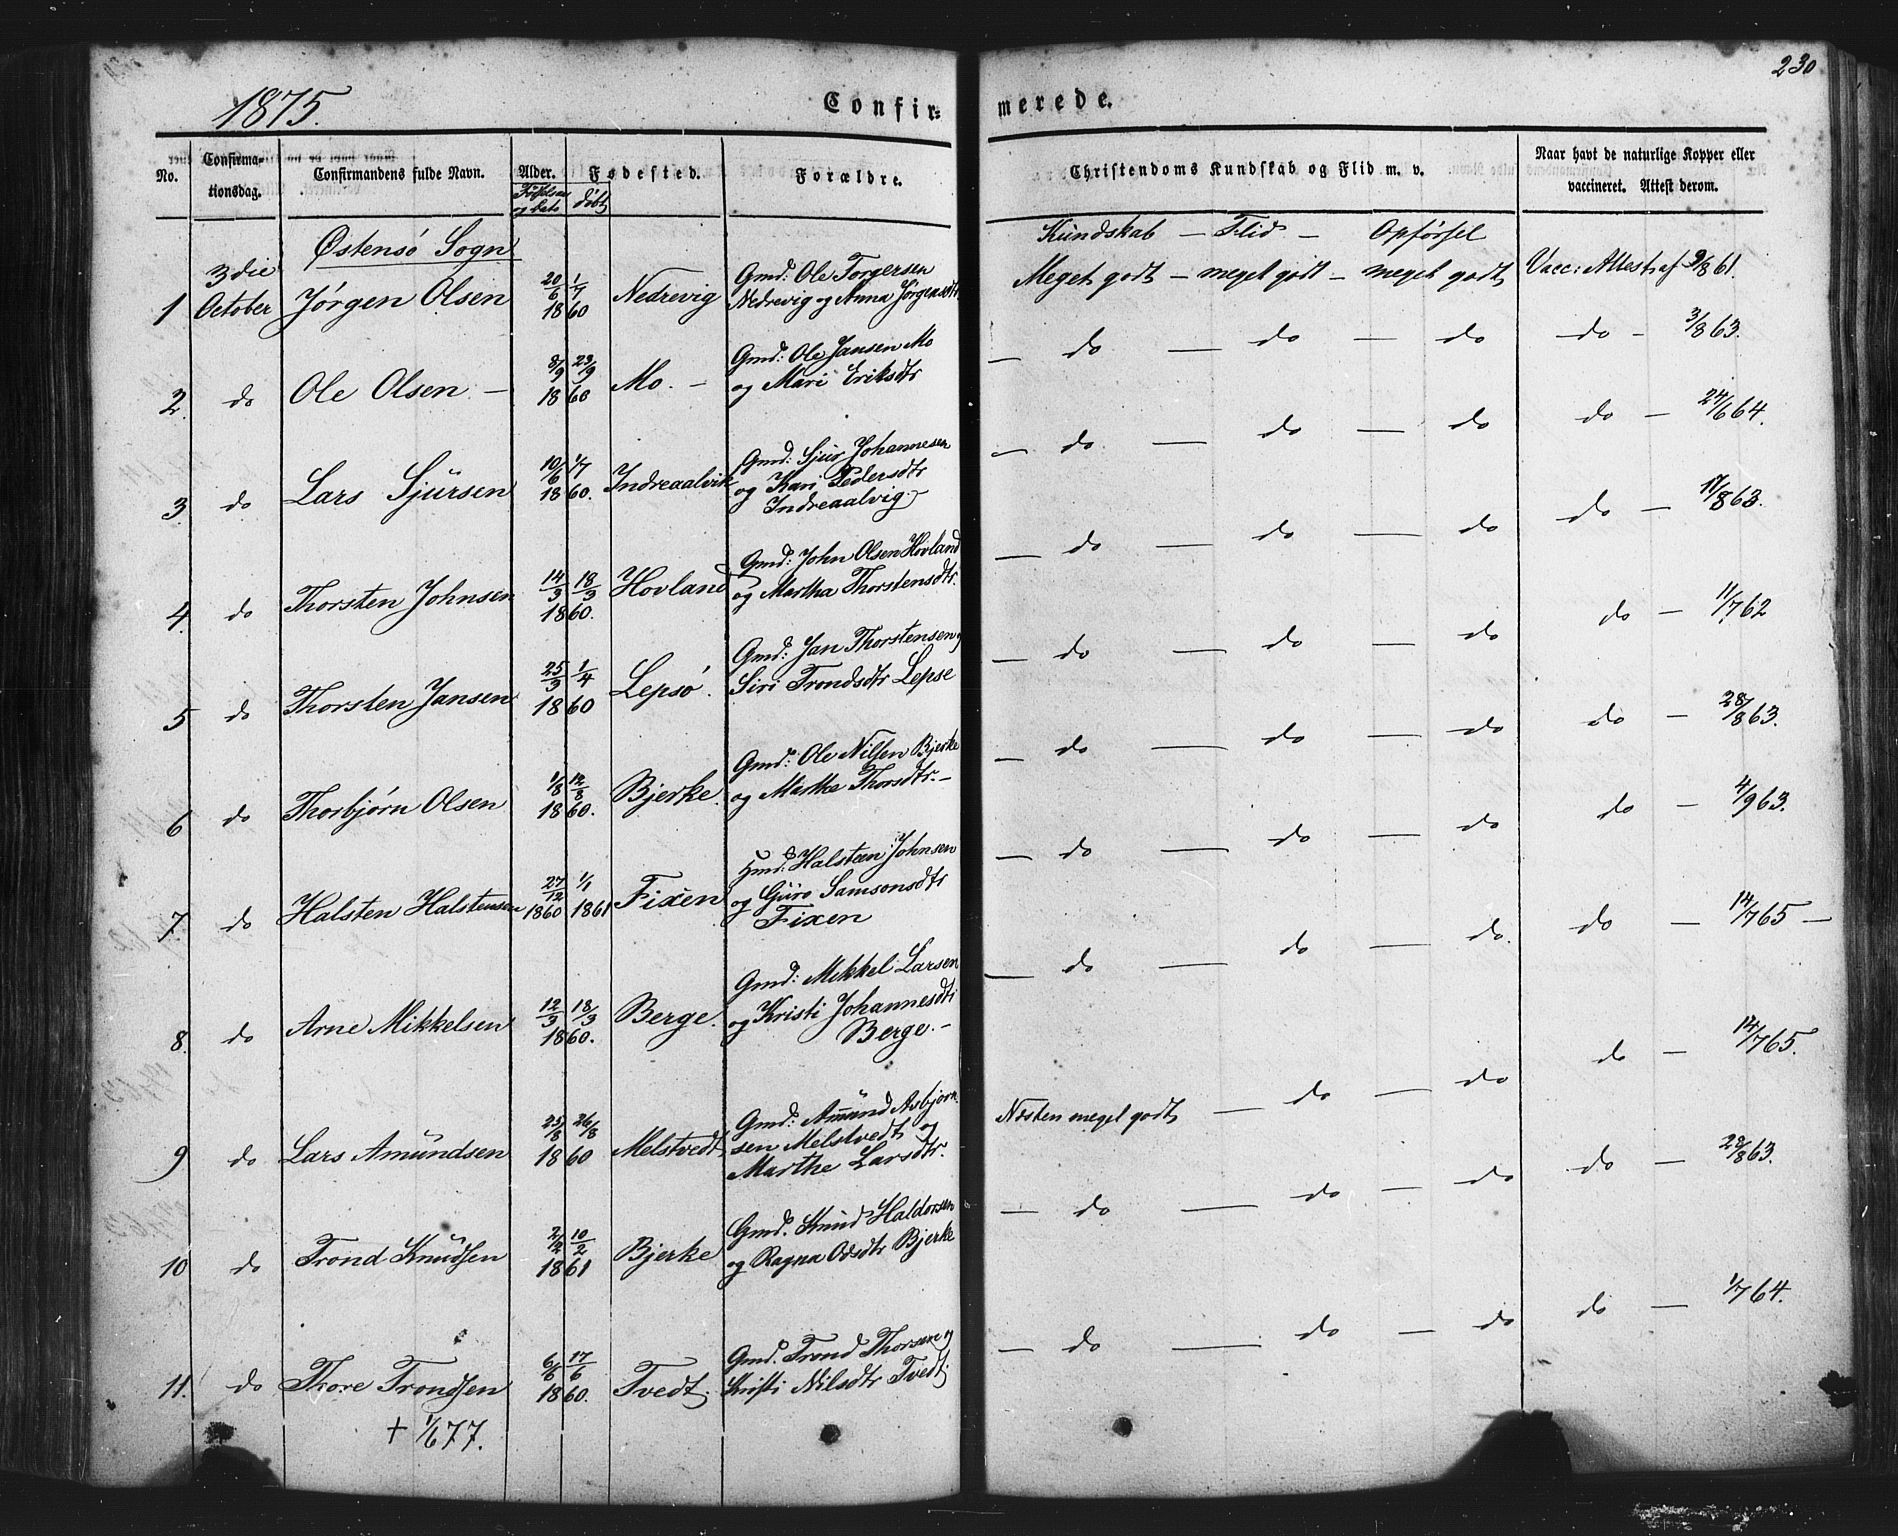 230
1875. Confirmerede.
No. Confirmationsdag. Confirmandens fulde Navn. Alder. Fødselsaar og Dato døbt Fødested. Forældre. Christendoms Kundskab og Flid m. v. Naar havt de naturlige Kopper eller vaccineret. Attest derom.
Østensö Sogn Kundskab — Flid — Opførsel
1 3die October Jørgen Olsen 20/6 1/7 1860 Nedrevig Gmd: Ole Torgersen Nedrevig og Anna Jørgensdtr Meget godt — meget godt — meget godt Vacc: Attest af 9/8 61.
2. do Ole Olsen — 8/9 23/9 1860 Mo. — Gmd: Ole Jansen Mo og Mari Eriksdtr — do — do — do do — 3/8 63.
3. do Lars Sjursen 10/6 1/7 1860. Indreaalvik Gmd: Sjur Johannesen og Kari Pedersdtr Indreaalvig — — do — do — do do — 24/6 64.
4. do Thorsten Johnsen 14/3 18/3 1860. Hovland Gmd: John Olsen Hovland og Martha Thorstensdtr. — do — do — do do — 17/8 63.
5 do Thorsten Jansen 25/3 1/4 1860 Lepsö. Gmd: Jan Thorstensen og Siri Trondsdtr Lepse — do — do — do do — 11/7 62
6 do Thorbjörn Olsen 1/8 12/8 1860. Bjerke. Gmd: Ole Nilsen Bjerke og Marthe Thorsdtr. — — do — do — do do — 28/8 63.
7. do Halsten Halstensen 27/12 1860 1/1 1861 Fixen Hmd. Halsteen Johnsen og Guro Samsonsdtr Fixen — do — do — do do — 4/9 63.
8. do Arne Mikkelsen 12/3 18/3 1860. Berge. Gmd: Mikkel Larsen og Kristi Johannesdtr Berge. — — do — do — do. do — 14/7 65 —
9 do Lars Amundsen 25/8 26/8 1860 Melstvedt Gmd: Amund Asbjørnsen Melstvedt og Marthe Larsdtr. Næsten meget godt — do — do do — 14/7 65.
10 do Trond Knudsen 2/2 10/2 1861 Bjerke Gmd. Knud Haldorsen og Ragna Odsdtr Bjerke — do — do — do do — 28/8 63.
11. do Thore Trondsen 6/6 17/6 1860. Tvedt. Gmd. Trond Thorsen og Kristi Nilsdtr Tvedt — do — do — do do — 1/7 64.
+ 1/6 77.